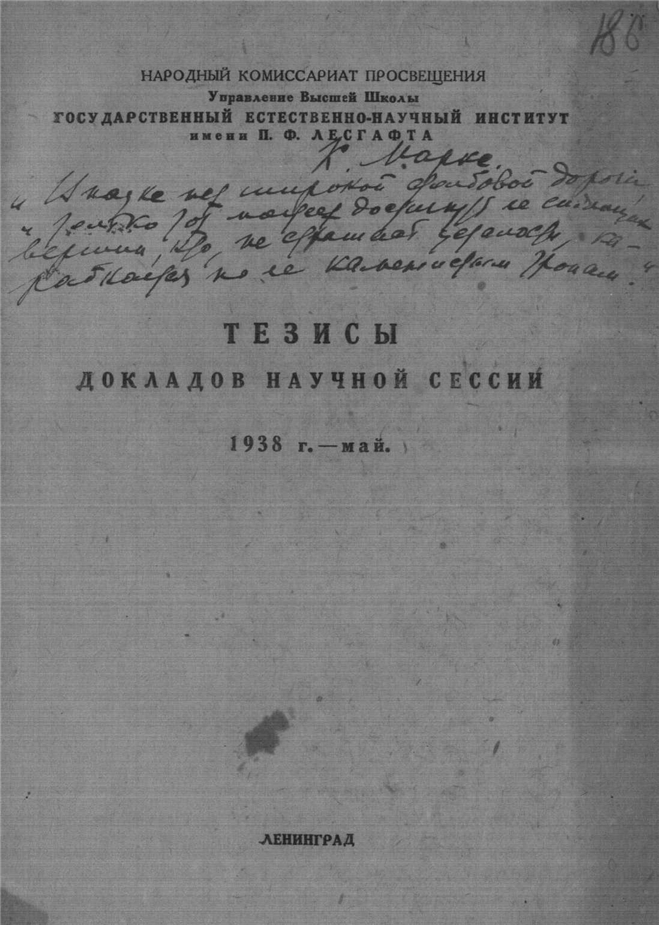 186
НАРОДНЫЙ КОМИССАРИАТ ПРОСВЕЩЕНИЯ
Управление Высшей Школы
ГОСУДАРСТВЕННЫЙ ЕСТЕСТВЕННО-НАУЧНЫЙ ИНСТИТУТ
имени П. Ф. ЛЕСГАФТА
К. Маркс.
„В науке нет широкой столбовой дороги,
„и только тот может достигнуть ее сияющих
вершин, кто, не страшась усталости, ка-
рабкается по ее каменистым тропам."
ТЕЗИСЫ
ДОКЛАДОВ НАУЧНОЙ СЕССИИ
1938 г.—май.
ЛЕНИНГРАД